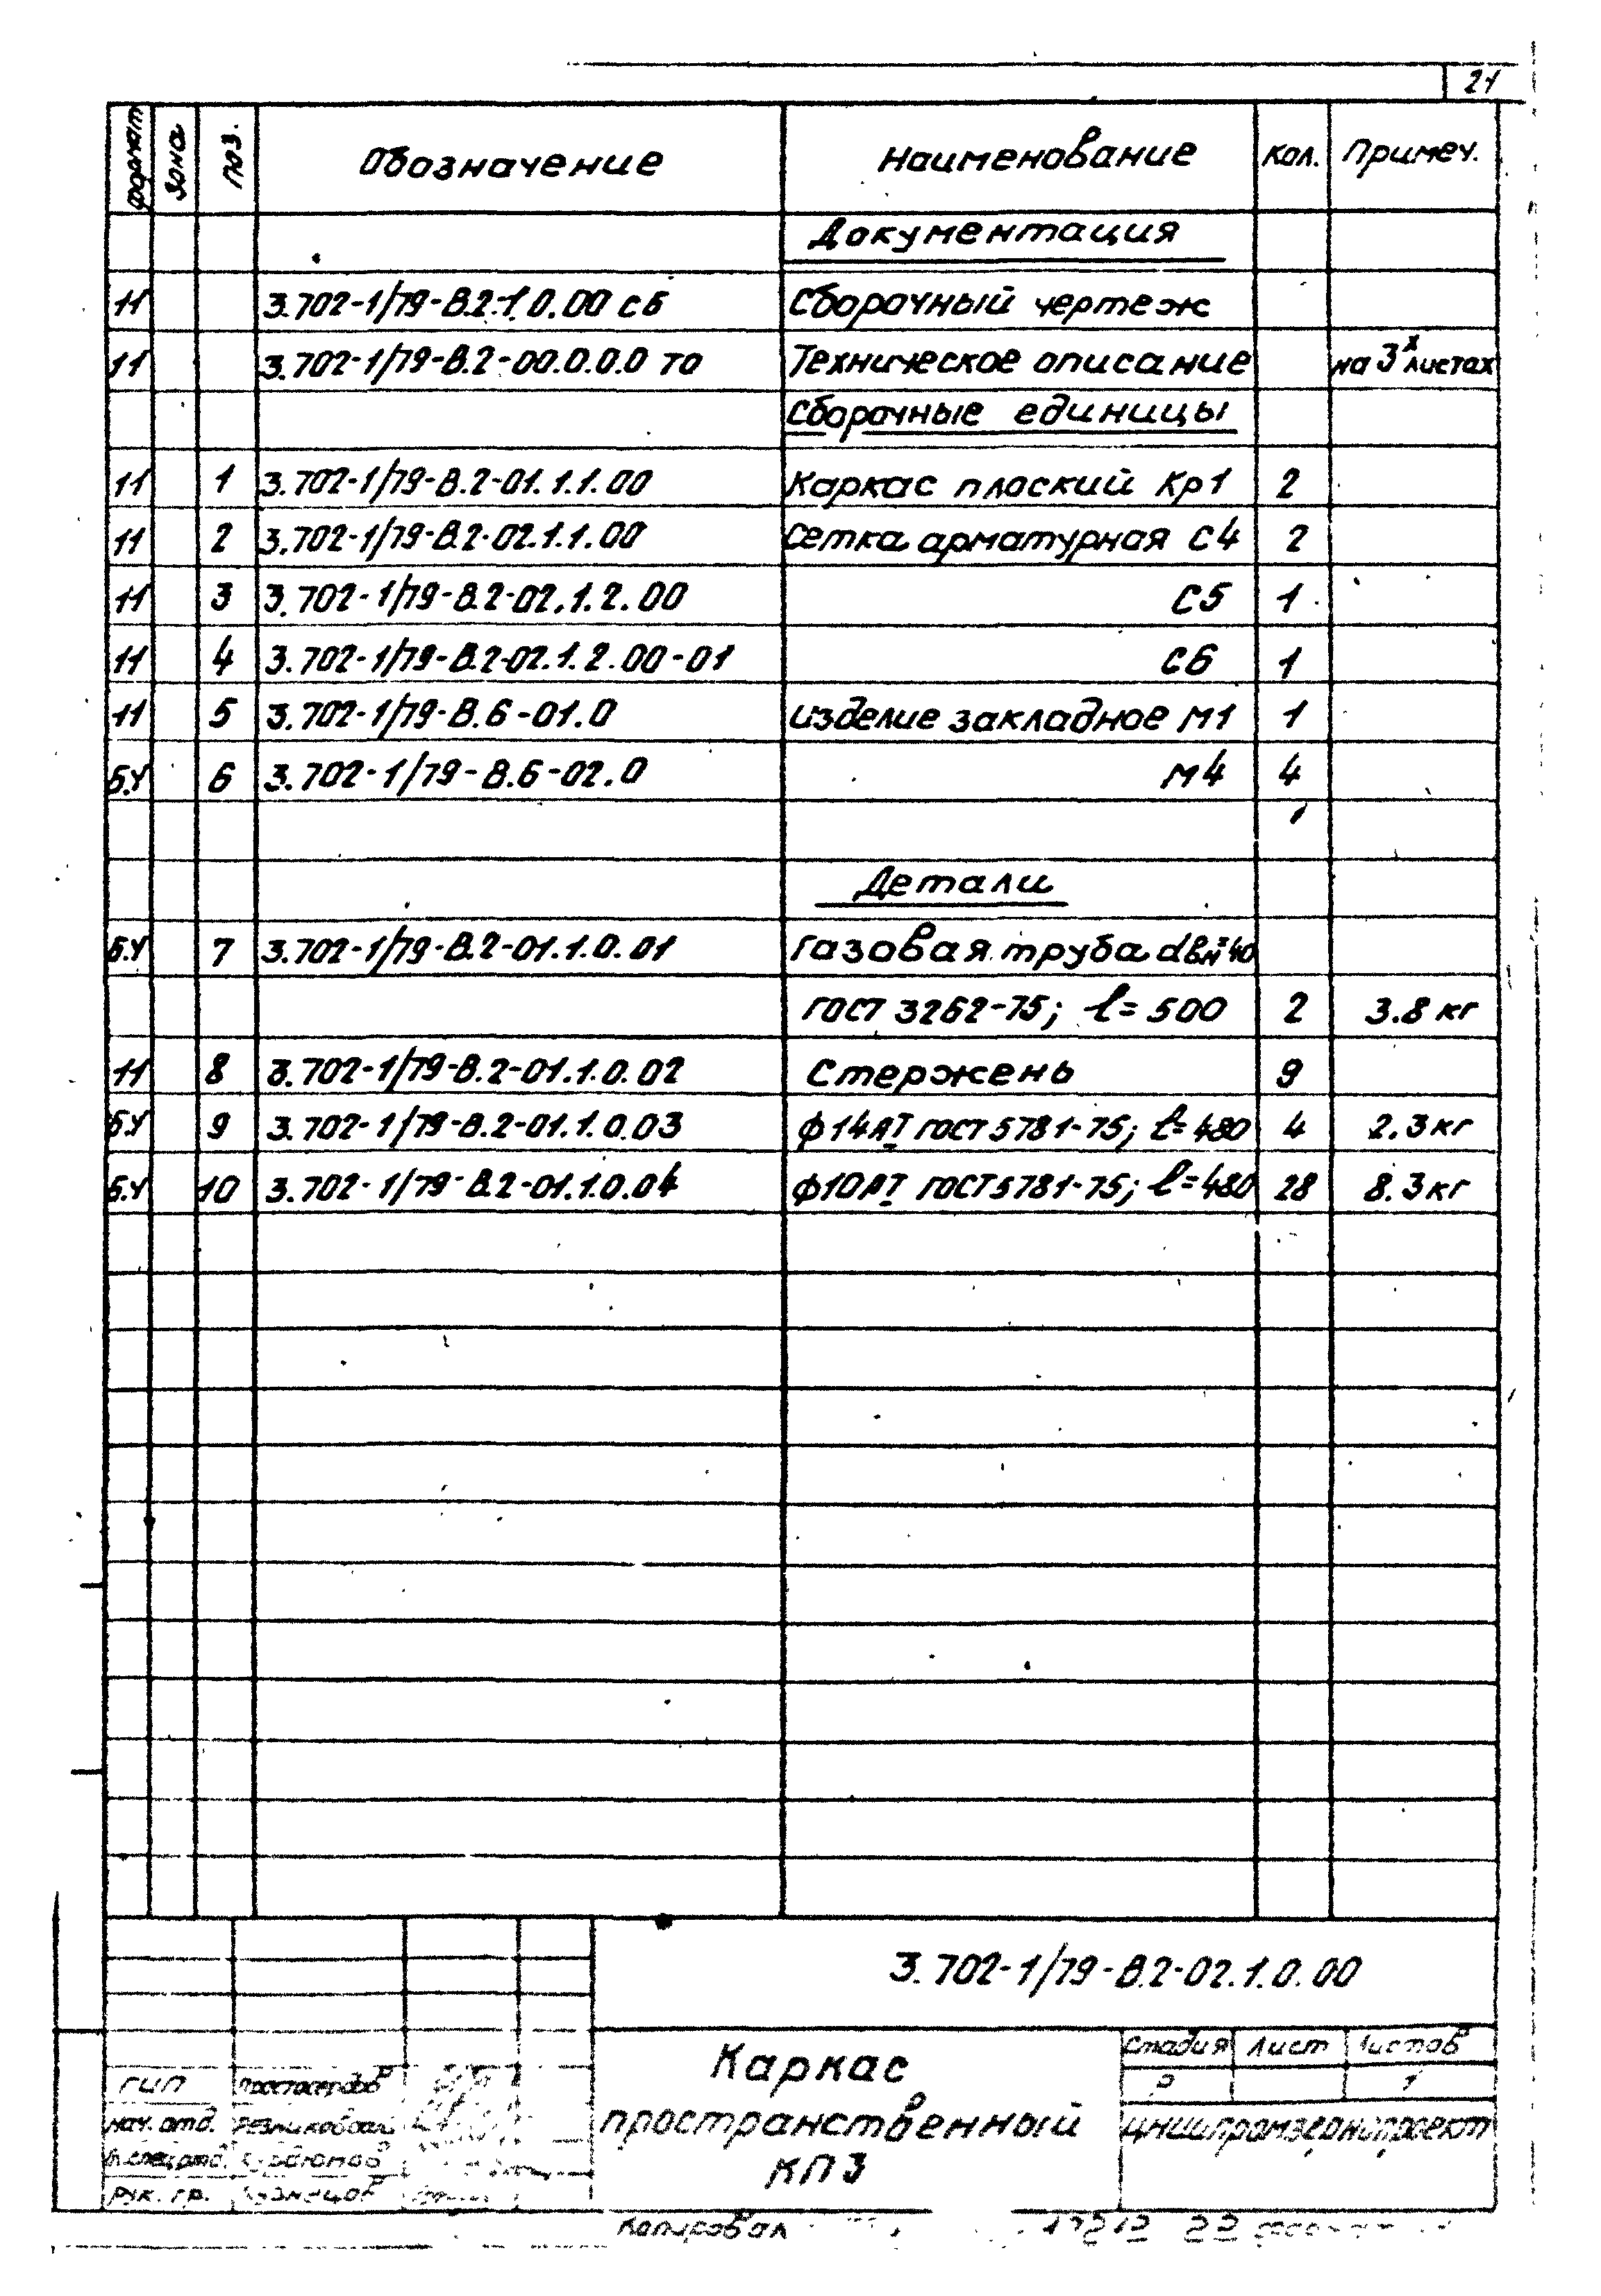 21
формат Зона поз. Обозначение Наименование Кол. Примеч.
Документация
11 3.702-1/79-В.2-1.0.00 сб Сборочный чертеж
11 3.702-1/79-В.2-00.0.0.0 то Техническое описание на 3х листах
Сборочные единицы
11 1 3.702-1/79-В.2-01.1.1.00 Каркас плоский Кр1 2
11 2 3.702-1/79-В.2-02.1.1.00 Сетка арматурная С4 2
11 3 3.702-1/79-В.2-02.1.2.00 С5 1
11 4 3.702-1/79-В.2-02.1.2.00-01 С6 1
11 5 3.702-1/79-В.6-01.0 изделие закладное М1 1
Б.Ч 6 3.702-1/79-В.6-02.0 М4 4
Детали
Б.Ч 7 3.702-1/79-В.2-01.1.0.01 Газовая труба dвн=40
ГОСТ 3262-75; ℓ=500 2 3.8 кг
11 8 3.702-1/79-В.2-01.1.0.02 Стержень 9
Б.Ч 9 3.702-1/79-В.2-01.1.0.03 ф14АI ГОСТ 5781-75; ℓ=480 4 2.3 кг
Б.Ч 10 3.702-1/79-В.2-01.1.0.04 ф10АI ГОСТ 5781-75; ℓ=480 28 8.3 кг
3.702-1/79-В.2-02.1.0.00
Каркас
пространственный
КП3
Стадия Лист Листов
Р 1
ЦНИИпромзернопроект
ГИП Простосердов
нач. отд. Резниковский
Гл.спец.отд.
рук. гр. Кузнецов
Копировал 17212 22